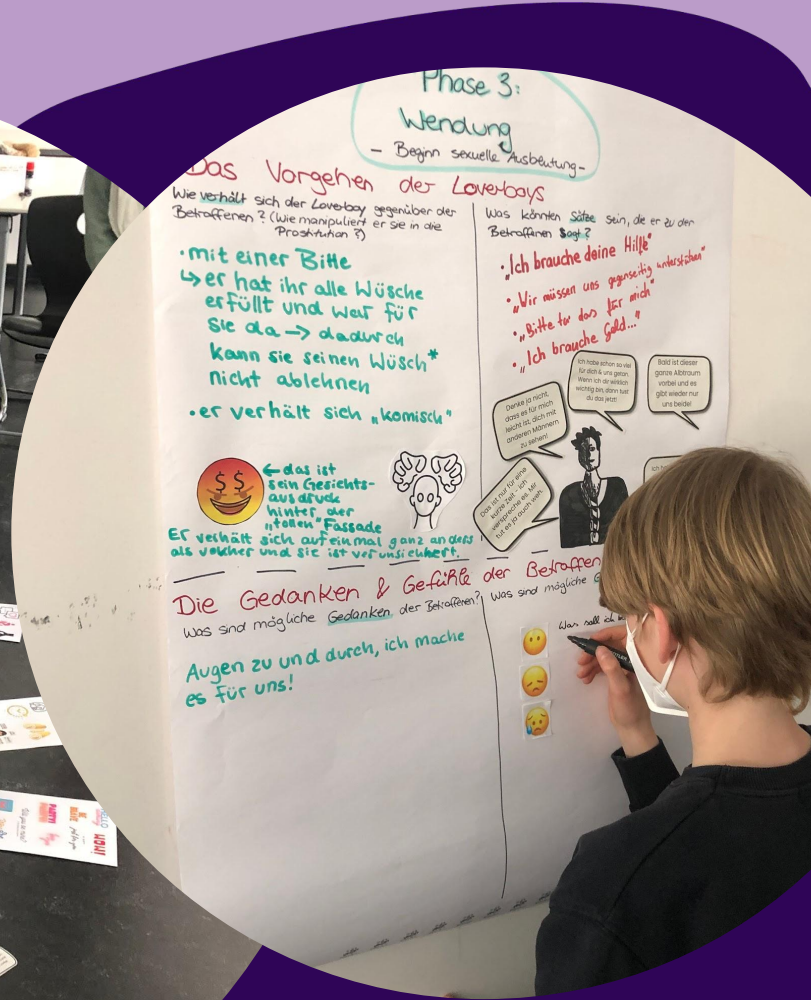 Phase 3:
Wendung
- Beginn sexuelle Ausbeutung -
Das Vorgehen der Loverboys
Wie verhält sich der Loverboy gegenüber der
Betroffenen? (Wie manipuliert er sie in die
Prostitution?)
• mit einer Bitte
↳ er hat ihr alle Wüsche
erfüllt und war für
sie da → dadurch
kann sie seinen Wüsch*
nicht ablehnen
• er verhält sich „komisch"
← das ist
sein Gesichts-
ausdruck
hinter der
„tollen" Fassade
Er verhält sich auf einmal ganz anders
als vorher und sie ist verunsichert.
Was könnten Sätze sein, die er zu der
Betroffenen sagt?
• „Ich brauche deine Hilfe"
• „Wir müssen uns gegenseitig unterstützen"
• „Bitte tu das für mich"
• „Ich brauche Geld..."
Ich habe schon so viel
für dich & uns getan.
Wenn ich dir wirklich
wichtig bin, dann tust
du das jetzt!
Bald ist dieser
ganze Albtraum
vorbei und es
gibt wieder nur
uns beide!
Denke ja nicht,
dass es für mich
leicht ist, dich mit
anderen Männern
zu sehen!
Das ist nur für eine
kurze Zeit - ich
verspreche es. Mir
tut es ja auch weh.
Ich
Die Gedanken & Gefühle der Betroffen
Was sind mögliche Gedanken der Betroffenen?
Augen zu und durch, ich mache
es für uns!
Was sind mögliche G
Was soll ich
HELLO
WOW!
PARTY!